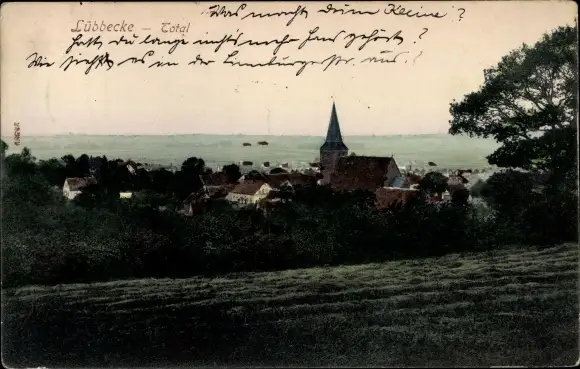 Was macht denn Kleine?
Lübbecke – Total
Hast du lange nichts mehr gehört?
Wie sieht es in der Lannbürgerstr. aus?